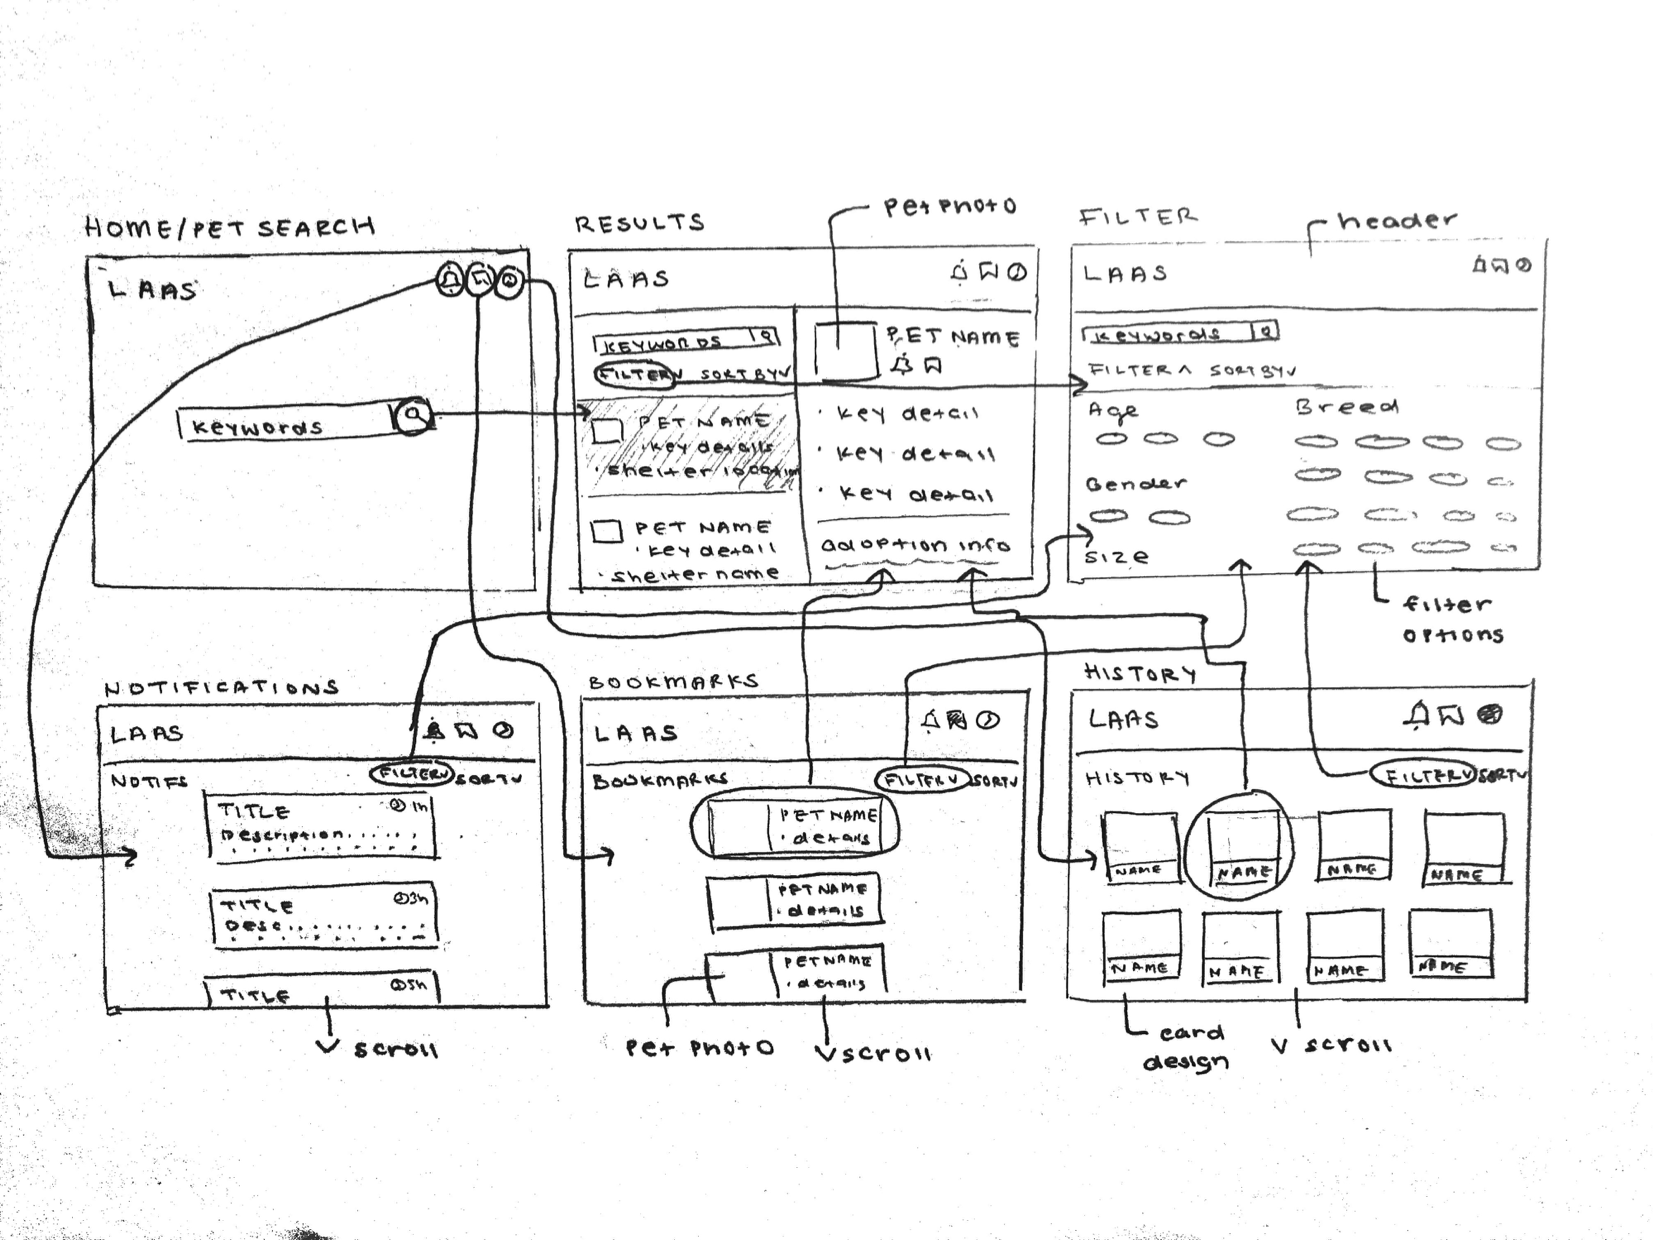 HOME/PET SEARCH
LAAS
Keywords
RESULTS
Pet Photo
LAAS
KEYWORDS
FILTER SORT BY
PET NAME
• Key details
• shelter location
PET NAME
• Key detail
• shelter name
PET NAME
• Key detail
• Key detail
• Key detail
adoption info
FILTER
header
LAAS
Keywords
FILTER SORT BY
Age
Breed
Gender
Size
filter
options
NOTIFICATIONS
LAAS
NOTIFS
FILTER SORT
TITLE 1h
Description
TITLE 3h
Desc
TITLE 5h
scroll
BOOKMARKS
LAAS
BOOKMARKS
FILTER SORT
PET NAME
• details
PET NAME
• details
PET NAME
• details
Pet Photo
scroll
HISTORY
LAAS
HISTORY
FILTER SORT
NAME NAME NAME NAME
NAME NAME NAME NAME
card
design
scroll